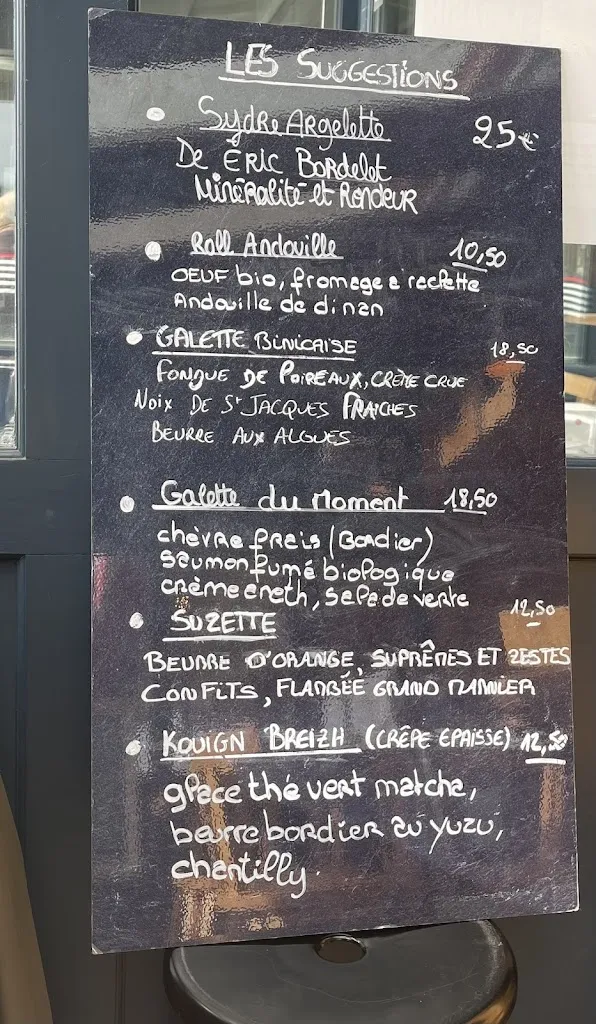 LES SUGGESTIONS
Sydre Argelette 25€
De ERIC Bordelet
Minéralité et Rondeur
Roll Andouille 10,50
OEUF bio, fromage a raclette
Andouille de dinan
GALETTE BINICAISE 18,50
FONDUE DE POIREAUX, CRÈME CRUE
NOIX DE St JACQUES FRAICHES
BEURRE AUX ALGUES
Galette du Moment 18,50
chèvre frais (Bordier)
saumon fumé biologique
crème aneth, salade verte
SUZETTE 12,50
BEURRE D'ORANGE, SUPRÊMES ET ZESTES
CONFITS, FLAMBÉE GRAND MARNIER
KOUIGN BREIZH (CRÊPE EPAISSE) 12,50
glace thé vert matcha,
beurre bordier au yuzu,
chantilly.